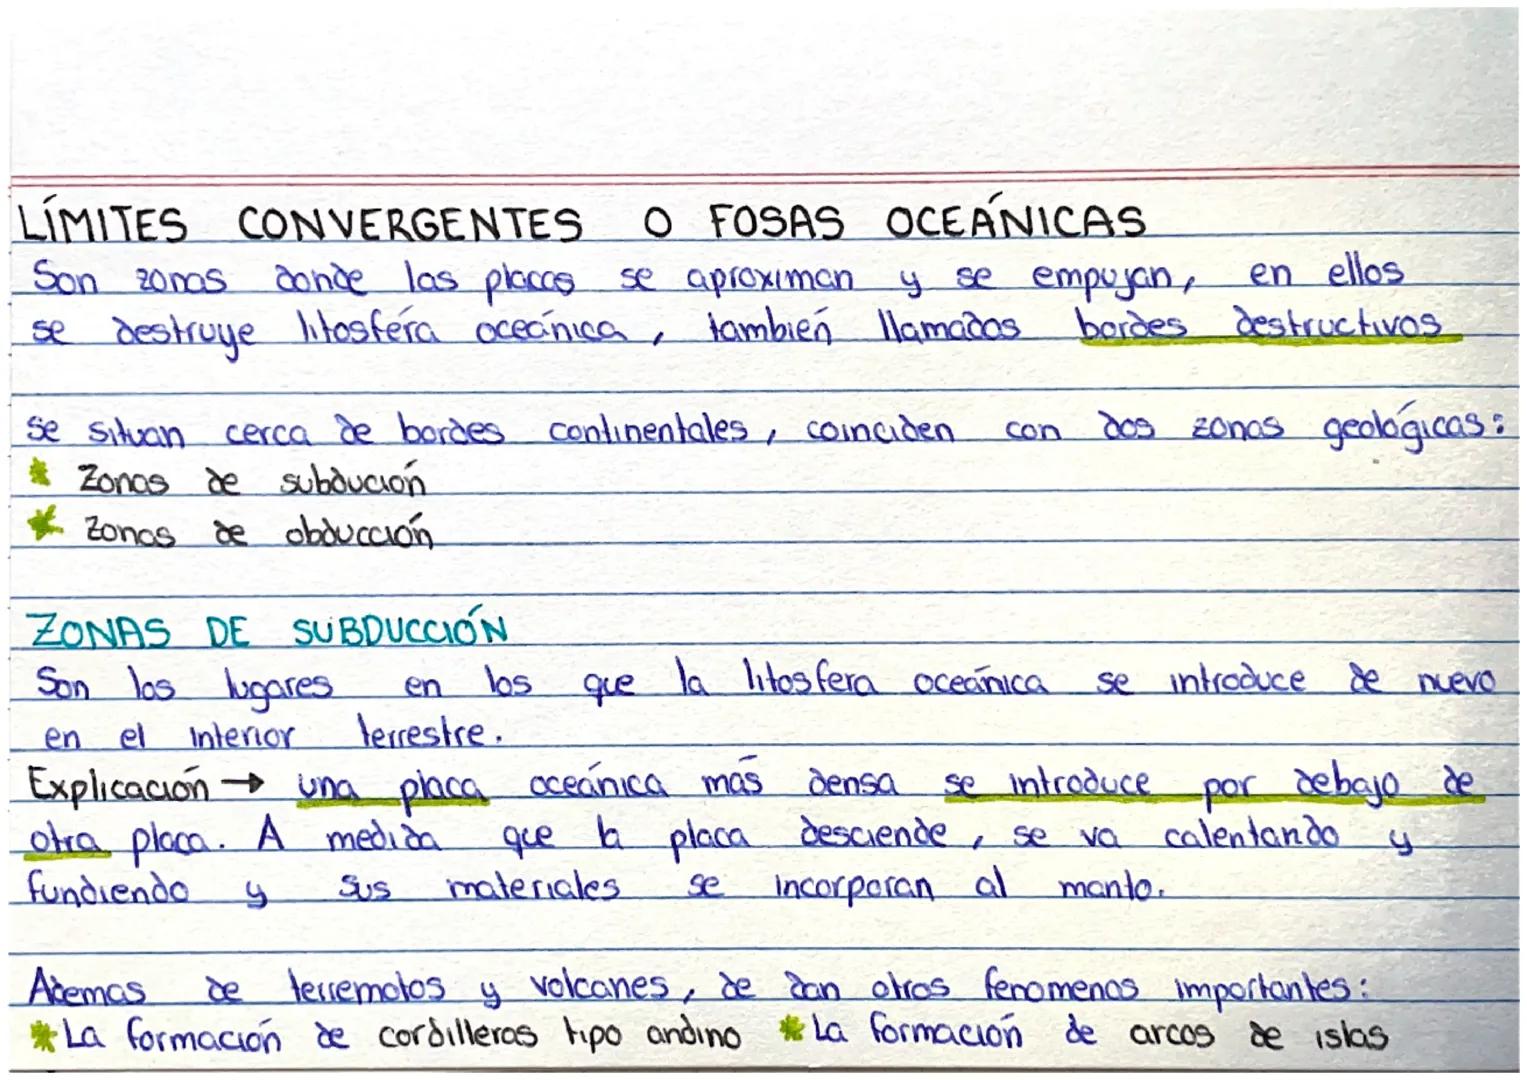 LÍMITES CONVERGENTES O FOSAS OCEÁNICAS
Son zonas donde las placas se aproximan y se empujan, en ellos
se destruye litosféra oceánica, también llamados bordes destructivos
se situan cerca de bordes continentales, coinciden con dos zonas geológicas:
* Zonas de subdución
* Zonas de obducción
ZONAS DE SUBDUCCIÓN
Son los lugares en los que la litosfera oceánica se introduce de nuevo
en el interior terrestre.
Explicación → una placa oceánica más densa se introduce por debajo de
otra placa. A medida que la placa desciende, se va calentando y
fundiendo y sus materiales se incorporan al manto.
Ademas de terremotos y volcanes, de dan otros fenomenos importantes:
* La formación de cordilleras tipo andino * La formación de arcos de islas